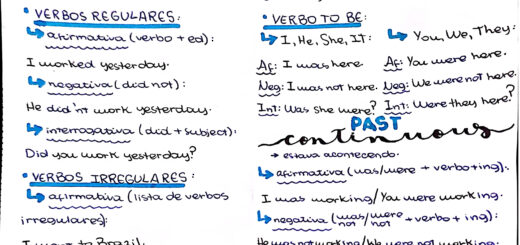 • VERBOS REGULARES:
↳ afirmativa (verbo + ed):
I worked yesterday.
↳ negativa (did not):
He did'nt work yesterday.
↳ interrogativa (did + subject):
Did you work yesterday?
• VERBOS IRREGULARES:
↳ afirmativa (lista de verbos
irregulares):
I went to Brazil.
• VERBO TO BE:
↳ I, He, She, IT:
Af: I was here.
Neg: I was not here.
Int: Was she were?
↳ You, We, They:
Af: You were here.
Neg: We were not here.
Int: Were they here?
PAST
continuous
→ estava acontecendo.
↳ afirmativa (was/were + verbo + ing):
I was working/You were working.
↳ negativa (was/were not not + verbo + ing):
He was not working/We were not working.